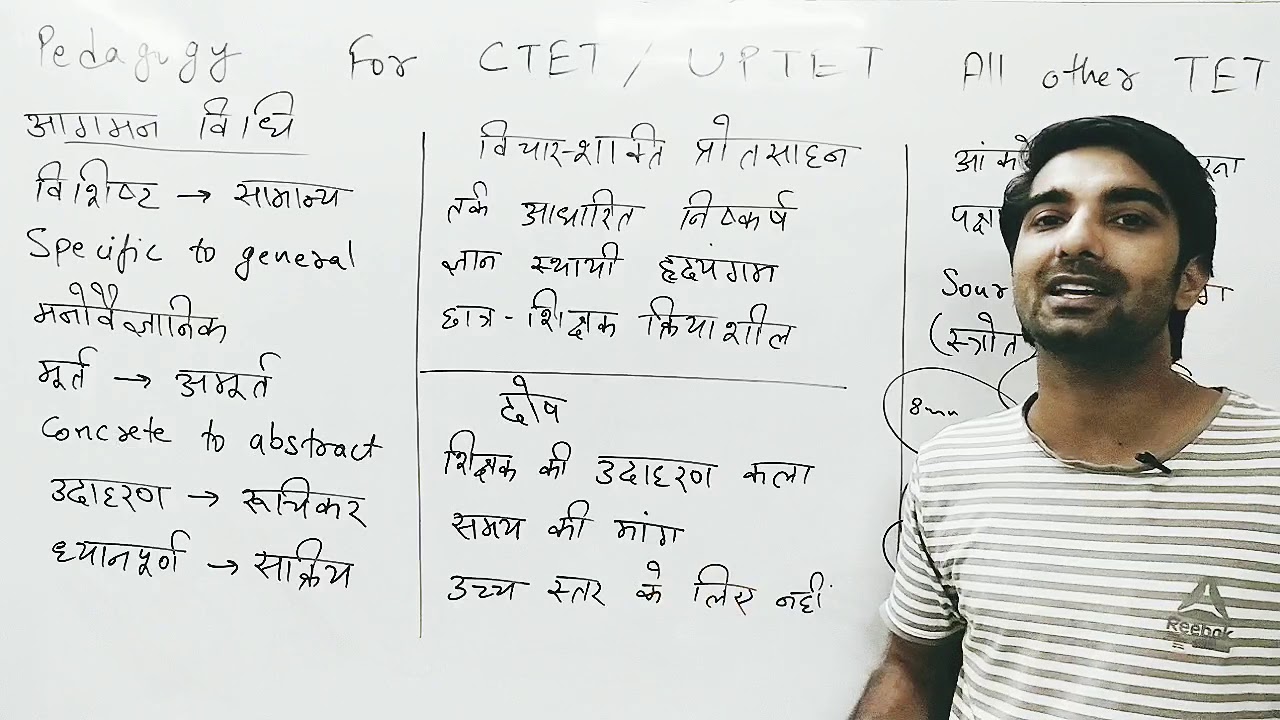 Pedagogy For CTET / UPTET All other TET
आगमन विधि
विशिष्ट → सामान्य
Specific to general
मनोवैज्ञानिक
मूर्त → अमूर्त
Concrete to abstract
उदाहरण → रूचिकर
ध्यानपूर्ण → सक्रिय
विचार-शक्ति प्रोतसाहन
तर्क आधारित निष्कर्ष
ज्ञान स्थायी हृदयंगम
छात्र - शिक्षक क्रियाशील
दोष
शिक्षक की उदाहरण कला
समय की मांग
उच्च स्तर के लिए नहीं
पक्ष
(स्त्रोत
Reebok